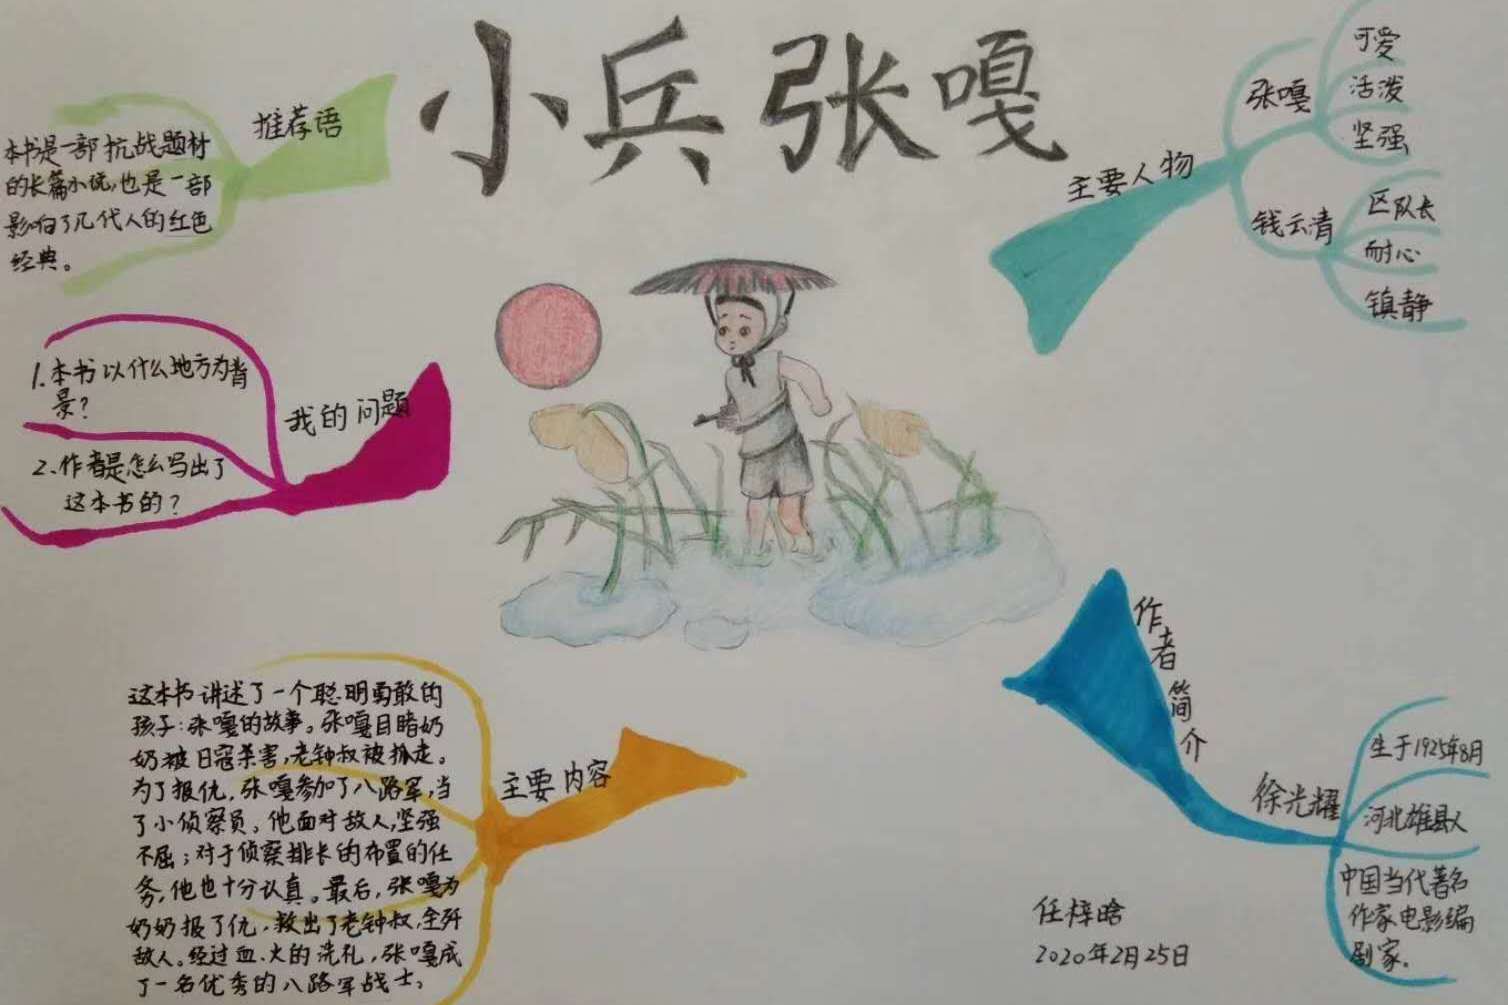 小兵张嘎
推荐语
本书是一部抗战题材
的长篇小说,也是一部
影响了几代人的红色
经典。
我的问题
1.本书以什么地方为背
景?
2.作者是怎么写出了
这本书的?
主要内容
这本书讲述了一个聪明勇敢的
孩子:张嘎的故事。张嘎目睹奶
奶被日寇杀害,老钟叔被抓走。
为了报仇,张嘎参加了八路军,当
了小侦察员。他面对敌人,坚强
不屈;对于侦察排长的布置的任
务,他也十分认真。最后,张嘎为
奶奶报了仇,救出了老钟叔,全歼
敌人。经过血、火的洗礼,张嘎成
了一名优秀的八路军战士。
主要人物
张嘎
可爱
活泼
坚强
钱云清
区队长
耐心
镇静
作者简介
徐光耀
生于1925年8月
河北雄县人
中国当代著名
作家电影编
剧家。
任梓晗
2020年2月25日